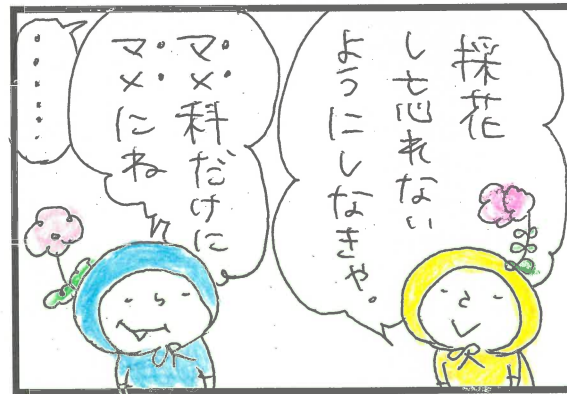 採花
し忘れない
ようにしなきゃ。
マメ科だけに
マメにね
・・・・・・